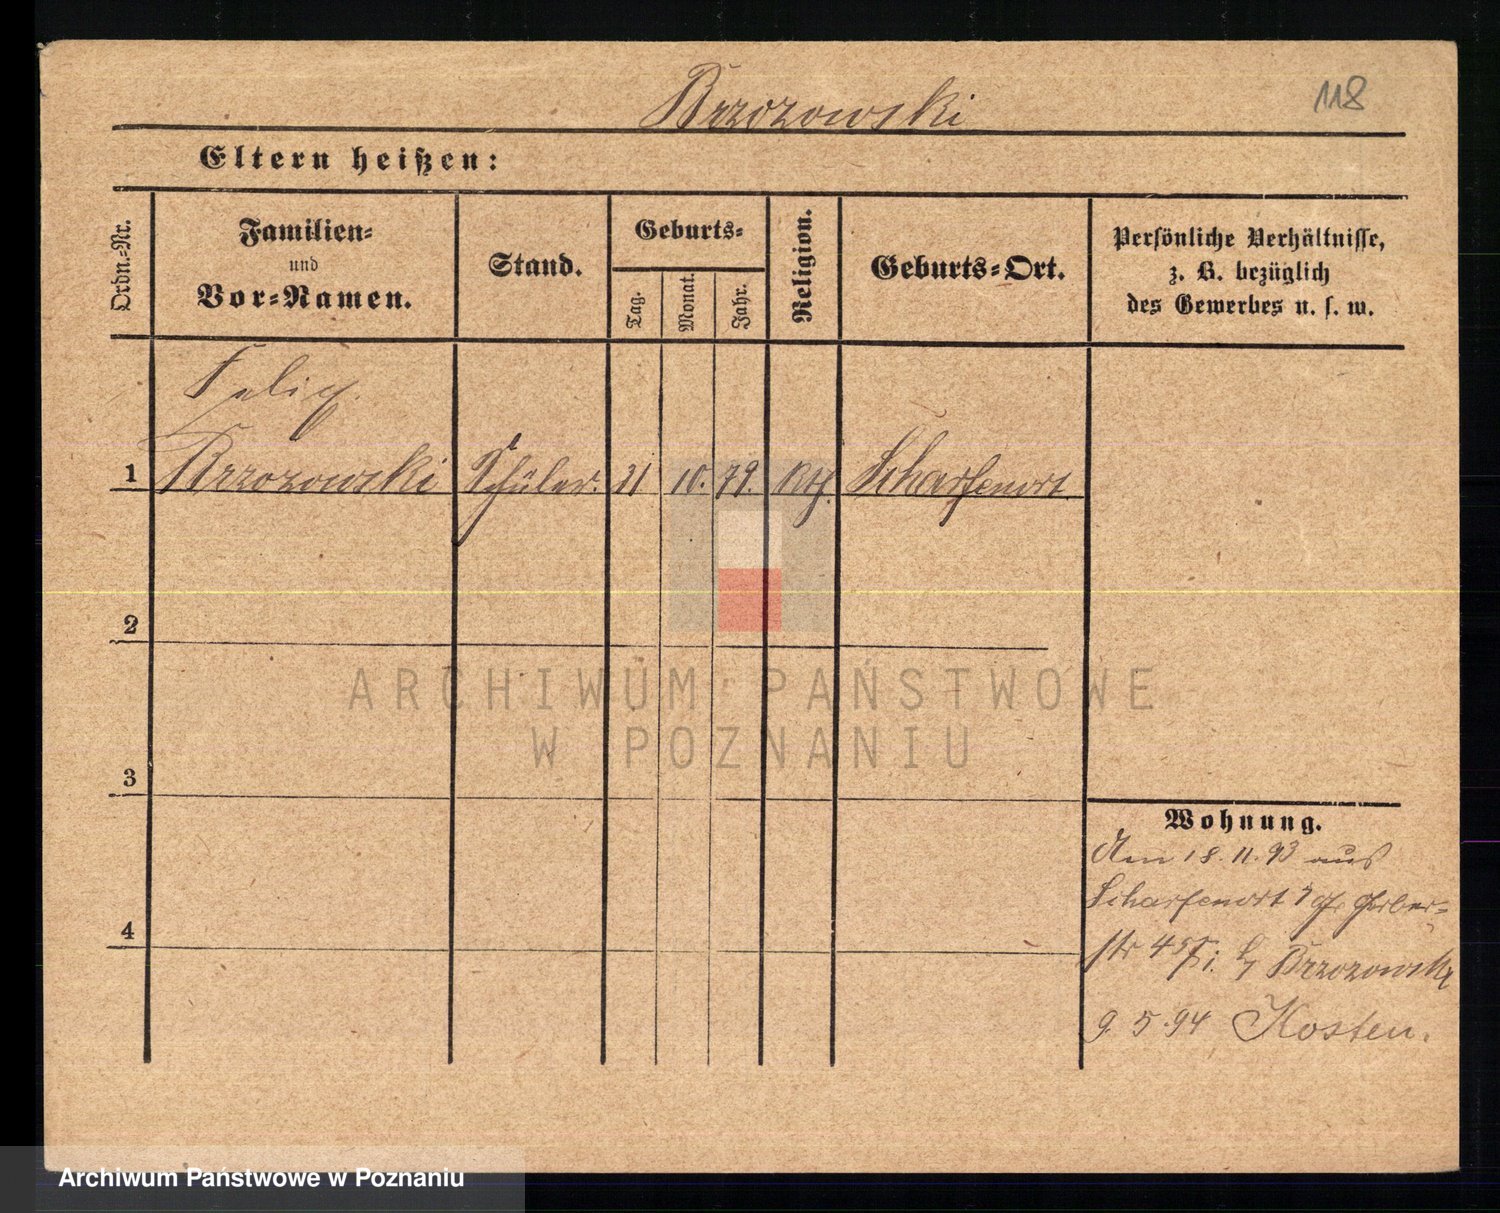 Brzozowski
118
Eltern heißen:
Ordn.-Nr.
Familien-
und
Vor-Namen.
Stand.
Geburts-
Tag.
Monat.
Jahr.
Religion.
Geburts-Ort.
Persönliche Verhältnisse,
z. B. bezüglich
des Gewerbes u. s. w.
Felix
1 Brzozowski Schüler. 21 10. 79. Kth. Scharfenort
2
3
4
Wohnung.
Am 18. 11. 93 aus
Scharfenort gr Gerber-
str 45 b Brzozowski
9. 5. 94 Kosten.
ARCHIWUM PAŃSTWOWE
W POZNANIU
Archiwum Państwowe w Poznaniu